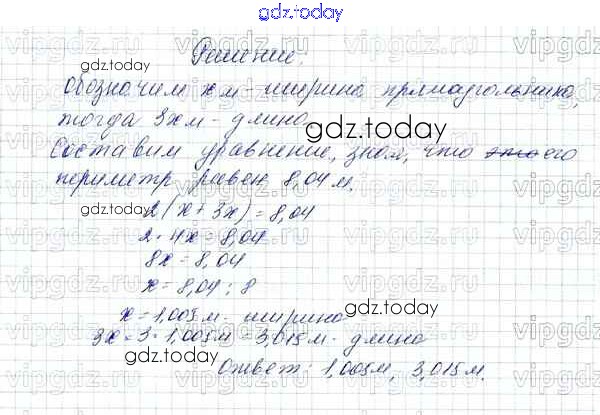 gdz.today
Решение.
gdz.today
обозначим x м - ширина прямоугольника,
тогда 3x м - длина
gdz.today
Составим уравнение, зная, что это его
периметр равен 8,04 м.
gdz.today
2(x + 3x) = 8,04
2 · 4x = 8,04
8x = 8,04
x = 8,04 : 8
gdz.today
x = 1,005 м - ширина
3x = 3 · 1,005 м = 3,015 м - длина
gdz.today
Ответ: 1,005 м, 3,015 м.
gdz.today